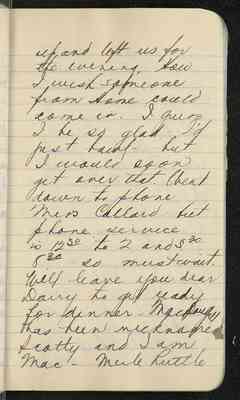 up and left us for
the evening. How
I wish someone
from home could
come in. I guess
I be so glad I'd
just bawl - but
I would soon
get over that. Went
down to phone
Miss Callard but
phone service
is 12³⁰ to 2 and 5³⁰
so must wait
Well leave you dear
Dairy to get ready
for dinner.
has been nicknamed
Scotty and I am
Mac - Merle Ruttle